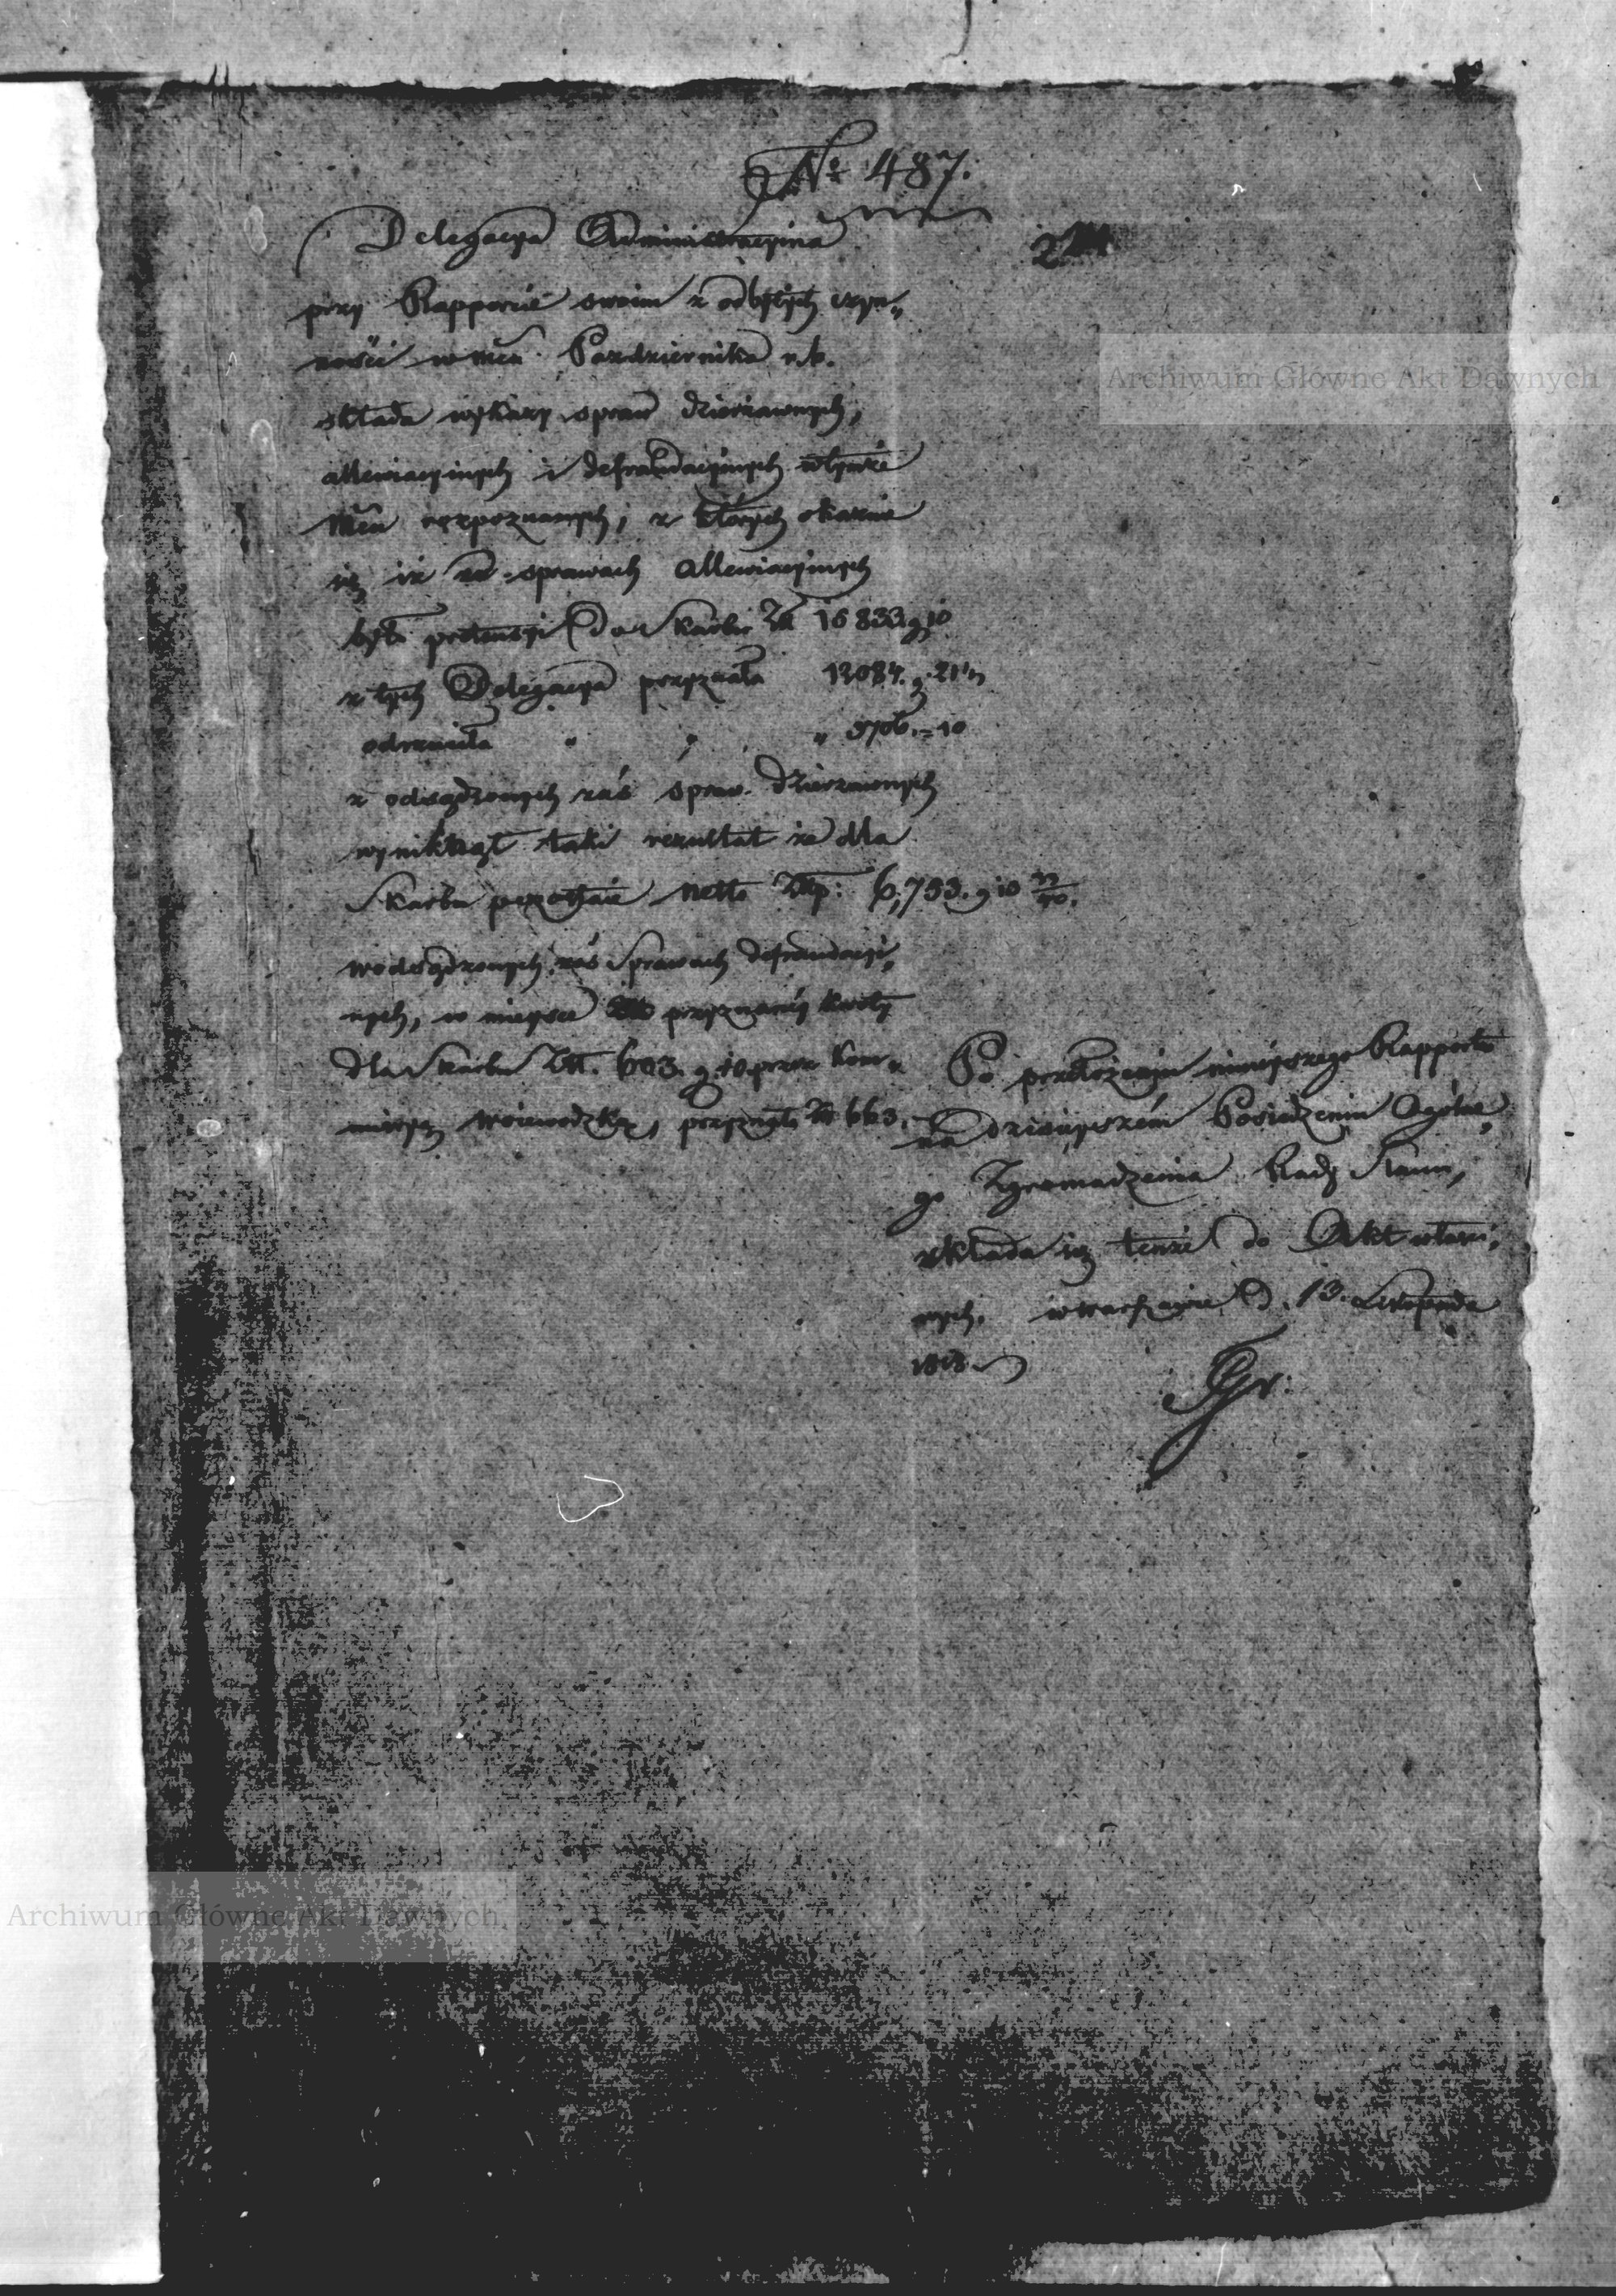 No 487.
Delegacya Administracyina
przy Rapporcie swoim z odbytych czyn„
ności w mcu Pazdziernika r. b.
składa wykazy spraw dzierzawnych,
allewiacyinych i defraudacyinych w tymże
mcu rozpoznanych, z których okazuie
się iż w sprawach allewiacyinych
było pretensyi do Skarbu Zł 16833. g 10
z tych Delegacya przyznała 13084. g.
odrzuciła " " " 3706.=10
z odsądzonych zaś spraw dzierzawnych
wyniknął taki rezultat że dla
Skarbu pozostaie netto Złp: 6,753. g 10
w odsądzonych zaś Sprawach defraudacyi„
nych, w mieysce przyznanéy kwoty
dla Skarbu Zł. 603. g. 10. przez Kom„
missyą Woiewodzką, przyznała Zł 663.
Po przełożeniu ninieyszego Rapportu
na dzisieyszém Posiedzeniu Ogólne„
go Zgromadzenia Rady Stanu,
składa się tenże do Akt właści„
wych. w Warszawie d. 13. Listopada
1818
Archiwum Główne Akt Dawnych
Archiwum Główne Akt Dawnych